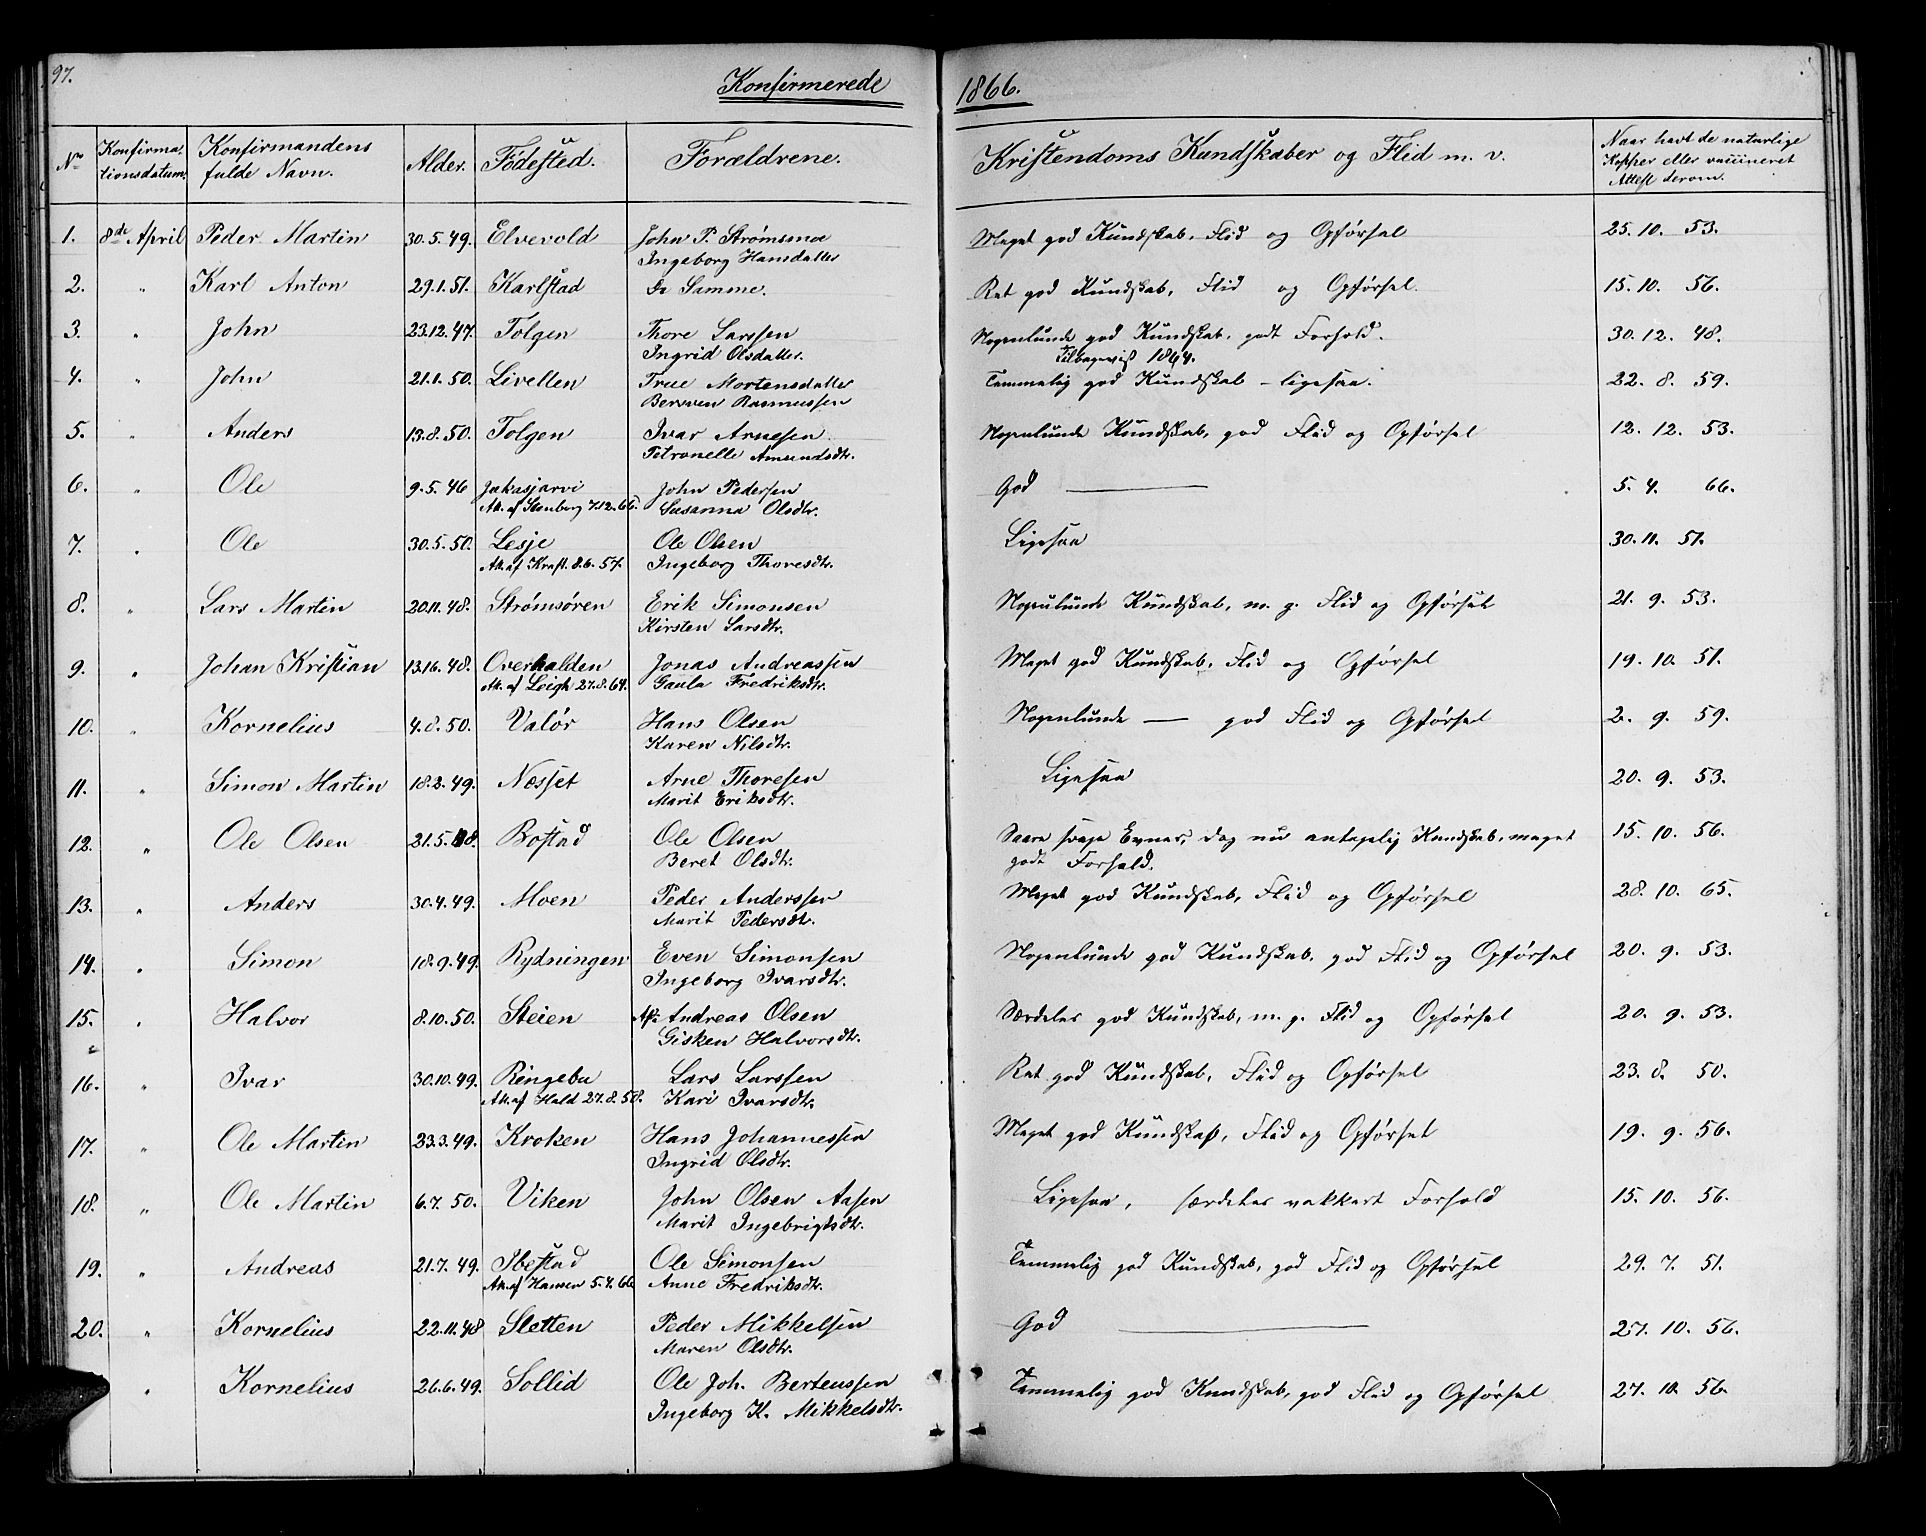 97.
Konfirmerede 1866.
No Konfirma- Konfirmandens Alder. Födested. Forældrene. Kristendoms Kundskaber og Flid m. v. Naar havt de naturlige
tionsdatum. fulde Navn. Kopper eller vaccineret
Attest derom.
1. 8de April Peder Martin 30.5.49. Elvevold John P. Strømsmoe Meget god Kundskab, Flid og Opførsel 25. 10. 53.
Ingeborg Hansdatter
2. " Karl Anton 29.1.51. Karlstad De Samme. Ret god Kundskab, Flid og Opførsel. 15. 10. 56.
3. " John 23.12.47. Tolgen Thore Larssen Nogenlunde god Kundskab, godt Forhold. 30. 12. 48.
Ingrid Olsdatter. Tilbagevist 1864.
4. " John 21.1.50. Livelten True Mortensdatter Temmelig god Kundskab - ligesaa. 22. 8. 59.
Rasmussen
5. " Anders 13.8.50. Tolgen Ivar Arnesen Nogenlunde Kundskab, god Flid og Opførsel 12. 12. 53.
Petronelle Amundsdtr.
6. " Ole 9.5.46 Jukasjarvi John Pedersen God — 5. 4. 66.
At. af Stenberg 7.12.65. Susanna Olsdtr.
7. " Ole 30.5.50. Lesje Ole Olsen Ligesaa 30. 11. 51.
At. af Kraft. 8.6.57. Ingeborg Thoresdtr.
8. " Lars Martin 20.11.48. Strømsøren Erik Simonsen Nogenlunde Kundskab, m. g. Flid og Opførsel 21. 9. 53.
Kirsten Larsdtr.
9. " Johan Kristian 13.16.48. Overhalden Jonas Andreassen Meget god Kundskab, Flid og Opførsel 19. 10. 51.
At. af Leigh 27.8.64. Gaula Fredriksdtr.
10. " Kornelius 4.8.50. Valör Hans Olsen Nogenlunde — god Flid og Opførsel 2. 9. 59.
Karen Nilsdtr.
11. " Simon Martin 18.2.49. Nesset Arne Thoresen Ligesaa 20. 9. 53.
Marit Eriksdtr.
12. " Ole Olsen 21.5.48. Bostad Ole Olsen Saare svage Evner, dog nu antagelig Kundskab, meget 15. 10. 56.
Beret Olsdtr. godt Forhold.
13. " Anders 30.4.49. Moen Peder Anderssen Meget god Kundskab, Flid og Opførsel 28. 10. 65.
Marit Pedersdtr.
14. " Simon 18.9.49. Rydningen Even Simonsen Nogenlunde god Kundskab, god Flid og Opførsel 20. 9. 53.
Ingeborg Ivarsdtr.
15. " Halvor 8.10.50. Steien Andreas Olsen Særdeles god Kundskab, m. g. Flid og Opførsel 20. 9. 53.
Gisken Halvorsdtr.
16. " Ivar 30.10.49. Ringebu Lars Larssen Ret god Kundskab, Flid og Opførsel 23. 8. 50.
At. af Hald 27.8.58. Kari Ivarsdtr.
17. " Ole Martin 23.3.49. Kroken Hans Johannessen Meget god Kundskab, Flid og Opførsel 19. 9. 56.
Ingrid Olsdtr.
18. " Ole Martin 6.7.50. Viken John Olsen Aasen Ligesaa, særdeles vakkert Forhold 15. 10. 56.
Marit Ingebrigtsdtr.
19. " Andreas 21.7.49. Ibestad Ole Simonsen Temmelig god Kundskab, god Flid og Opførsel 29. 7. 51.
At. af Hansen 5.4.66 Anne Fredriksdtr.
20. " Kornelius 22.11.48 Sletten Peder Mikkelsen God — 27. 10. 56.
Maren Olsdtr.
" Kornelius 26.6.49. Sollid Ole Joh. Berteussen Temmelig god Kundskab, god Flid og Opførsel 27. 10. 56.
Ingeborg K. Mikkelsdtr.